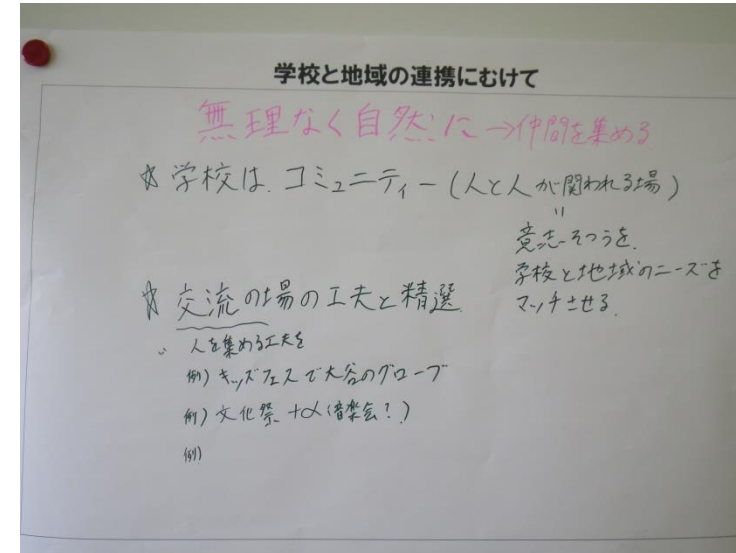 学校と地域の連携にむけて
無理なく自然に→仲間を集める
☆学校は、コミュニティー(人と人が関われる場)
〃
意志そつうを、
学校と地域のニーズを
マッチさせる。
☆交流の場の工夫と精選
人を集める工夫を
例)キッズフェスで大谷のグローブ
例)文化祭+α(音楽会?)
例)